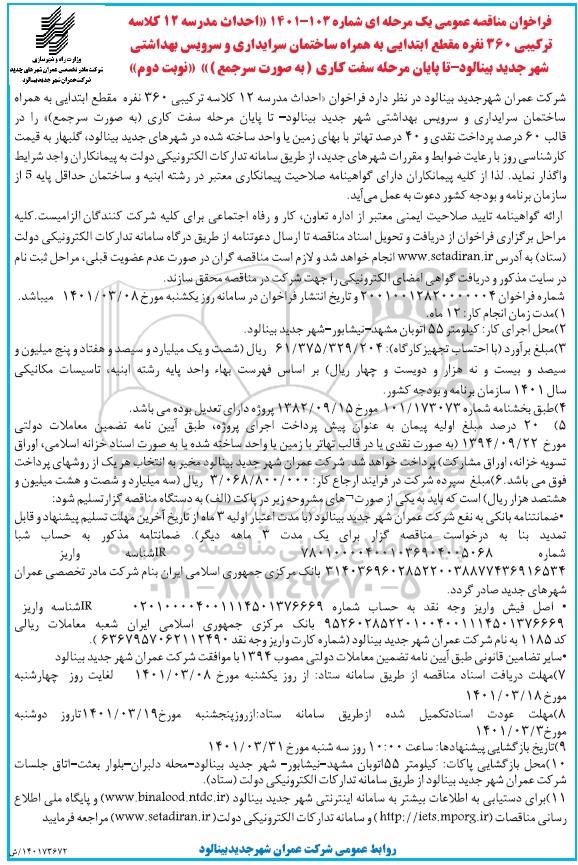 فراخوان مناقصه عمومی یک مرحله ای شماره ۱۰۳-۱۴۰۱ «احداث مدرسه ۱۲ کلاسه
ترکیبی ۳۶۰ نفره مقطع ابتدایی به همراه ساختمان سرایداری و سرویس بهداشتی
شهر جدید بینالود-تا پایان مرحله سفت کاری (به صورت سرجمع)» «نوبت دوم»
وزارت راه و شهرسازی
شرکت مادر تخصصی عمران شهرهای جدید
شرکت عمران شهر جدید بینالود
شرکت عمران شهرجدید بینالود در نظر دارد فراخوان «احداث مدرسه ۱۲ کلاسه ترکیبی ۳۶۰ نفره مقطع ابتدایی به همراه
ساختمان سرایداری و سرویس بهداشتی شهر جدید بینالود- تا پایان مرحله سفت کاری (به صورت سرجمع)» را در
قالب ۶۰ درصد پرداخت نقدی و ۴۰ درصد تهاتر با بهای زمین یا واحد ساخته شده در شهرهای جدید بینالود، گلبهار به قیمت
کارشناسی روز با رعایت ضوابط و مقررات شهرهای جدید، از طریق سامانه تدارکات الکترونیکی دولت به پیمانکاران واجد شرایط
واگذار نماید. لذا از کلیه پیمانکاران دارای گواهینامه صلاحیت پیمانکاری معتبر در رشته ابنیه و ساختمان حداقل پایه 5 از
سازمان برنامه و بودجه کشور دعوت به عمل می‌آید.
ارائه گواهینامه تایید صلاحیت ایمنی معتبر از اداره تعاون، کار و رفاه اجتماعی برای کلیه شرکت کنندگان الزامیست.کلیه
مراحل برگزاری فراخوان از دریافت و تحویل اسناد مناقصه تا ارسال دعوتنامه از طریق درگاه سامانه تدارکات الکترونیکی دولت
(ستاد) به آدرس www.setadiran.ir انجام خواهد شد و لازم است مناقصه گران در صورت عدم عضویت قبلی، مراحل ثبت نام
در سایت مذکور و دریافت گواهی امضای الکترونیکی را جهت شرکت در مناقصه محقق سازند.
شماره فراخوان ۲۰۰۱۰۰۱۲۸۲۰۰۰۰۰۰۴ و تاریخ انتشار فراخوان در سامانه روز یکشنبه مورخ ۱۴۰۱/۰۳/۰۸ میباشد.
۱)مدت زمان انجام کار: ۱۲ ماه.
۲)محل اجرای کار: کیلومتر ۵۵ اتوبان مشهد-نیشابور-شهر جدید بینالود.
۳)مبلغ برآورد (با احتساب تجهیز کارگاه): ۶۱/۳۷۵/۳۲۹/۲۰۴ ریال (شصت و یک میلیارد و سیصد و هفتاد و پنج میلیون و
سیصد و بیست و نه هزار و دویست و چهار ریال) بر اساس فهرست بهاء واحد پایه رشته ابنیه، تاسیسات مکانیکی
سال ۱۴۰۱ سازمان برنامه و بودجه کشور.
۴)طبق بخشنامه شماره ۱۰۱/۱۷۳۰۷۳ مورخ ۱۳۸۲/۰۹/۱۵ پروژه دارای تعدیل بوده می باشد.
۵) ۲۰ درصد مبلغ اولیه پیمان به عنوان پیش پرداخت اجرای پروژه، طبق آیین نامه تضمین معاملات دولتی
مورخ ۱۳۹۴/۰۹/۲۲ (به صورت نقدی یا در قالب تهاتر با زمین یا واحد ساخته شده یا به صورت اسناد خزانه اسلامی، اوراق
تسویه خزانه، اوراق مشارکت) پرداخت خواهد شد. شرکت عمران شهر جدید بینالود مخیر به انتخاب هر یک از روشهای پرداخت
فوق می باشد.۶)مبلغ سپرده شرکت در فرایند ارجاع کار: ۳/۰۶۸/۸۰۰/۰۰۰ ریال (سه میلیارد و شصت و هشت میلیون و
هشتصد هزار ریال) است که باید به یکی از صورت¬های مشروحه زیر در پاکت (الف) به دستگاه مناقصه گزار تسلیم شود:
•ضمانتنامه بانکی به نفع شرکت عمران شهر جدید بینالود (با مدت اعتبار اولیه ۳ ماه از تاریخ آخرین مهلت تسلیم پیشنهاد و قابل
تمدید بنا به درخواست مناقصه گزار برای یک مدت ۳ ماهه دیگر). ضمانتنامه مذکور به حساب شبا
شماره IR۷۸۰۱۰۰۰۰۴۰۰۱۰۳۶۹۰۴۰۰۵۰۶۸ شناسه واریز
۳۱۴۰۳۶۹۶۰۲۸۵۲۲۰۰۳۸۸۷۷۴۳۶۹۱۶۵۳۴ بانک مرکزی جمهوری اسلامی ایران بنام شرکت مادر تخصصی عمران
شهرهای جدید صادر گردد.
• اصل فیش واریز وجه نقد به حساب شماره IR۰۲۰۱۰۰۰۰۴۰۰۱۱۱۴۵۰۱۳۷۶۶۶۹ شناسه واریز
۹۵۲۶۰۲۸۵۲۲۰۱۰۰۴۰۰۱۱۱۴۵۰۱۳۷۶۶۶۹ بانک مرکزی جمهوری اسلامی ایران شعبه معاملات ریالی
کد 1185 به نام شرکت عمران شهر جدید بینالود (شماره کارت واریز وجه نقد ۶۳۶۷۹۵۷۰۶۲۱۱۲۴۹۰).
•سایر تضامین قانونی طبق آیین نامه تضمین معاملات دولتی مصوب ۱۳۹۴ با موافقت شرکت عمران شهر جدید بینالود
۷)مهلت دریافت اسناد مناقصه از طریق سامانه ستاد: از روز یکشنبه مورخ ۱۴۰۱/۰۳/۰۸ لغایت روز چهارشنبه
مورخ ۱۴۰۱/۰۳/۱۸
۸)مهلت عودت اسنادتکمیل شده ازطریق سامانه ستاد:ازروزپنجشنبه مورخ۱۴۰۱/۰۳/۱۹تاروز دوشنبه
مورخ ۱۴۰۱/۰۳/۳۰
۹)تاریخ بازگشایی پیشنهادها: ساعت ۱۰:۰۰ روز سه شنبه مورخ ۱۴۰۱/۰۳/۳۱
۱۰)محل بازگشایی پاکات: کیلومتر ۵۵اتوبان مشهد-نیشابور- شهر جدید بینالود-محله دلبران-بلوار بعثت-اتاق جلسات
شرکت عمران شهر جدید بینالود از طریق سامانه تدارکات الکترونیکی دولت (ستاد).
۱۱)برای دستیابی به اطلاعات بیشتر به سامانه اینترنتی شهر جدید بینالود (www.binalood.ntdc.ir) و پایگاه ملی اطلاع
رسانی مناقصات (http://iets.mporg.ir) و سامانه تدارکات الکترونیکی دولت( www.setadiran.ir) مراجعه فرمایید
روابط عمومی شرکت عمران شهرجدیدبینالود
۱۴۰۱۷۳۶۷۲/ش
۰۲۱-۸۸۳۴۹۶۷۰-۵